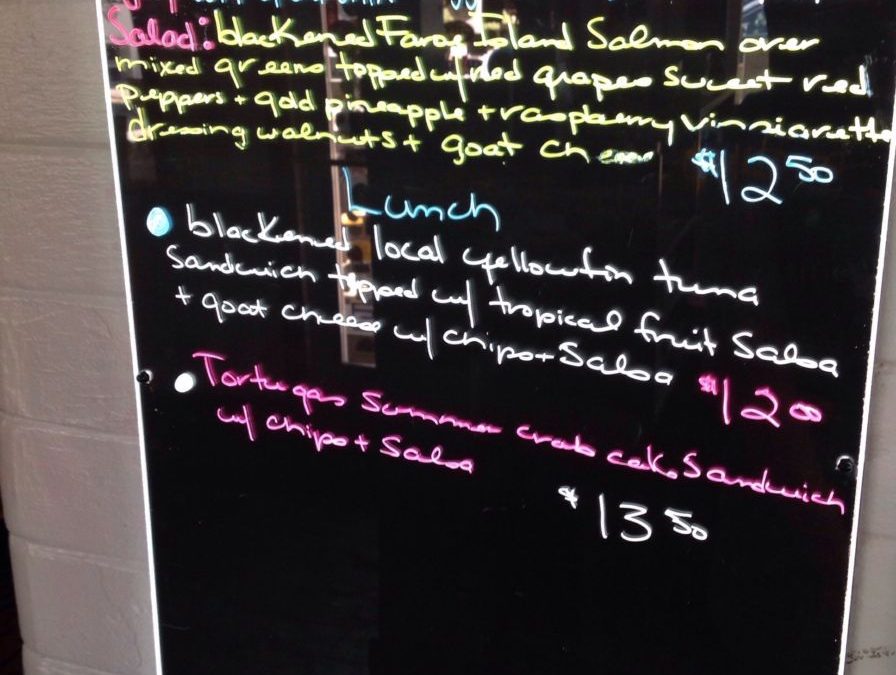 Salad: blackened Faroe Island Salmon over
mixed greens topped w/ red grapes sweet red
peppers + gold pineapple + raspberry vinniarette
dressing walnuts + goat cheese
$12 50
Lunch
blackened local yellowfin tuna
Sandwich topped w/ tropical fruit Salsa
+ goat cheese w/ chips + Salsa
$12 00
Tortugas Summer crab cake Sandwich
w/ chips + Salsa
$13 50